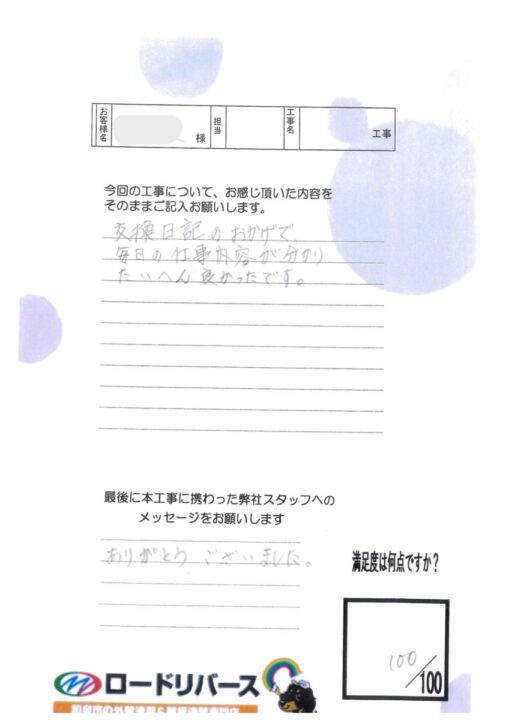 お客様名
様
担当
工事名
工事
今回の工事について、お感じ頂いた内容を
そのままご記入お願いします。
交換日記のおかげで、
毎日の仕事内容が分かり
たいへん良かったです。
最後に本工事に携わった弊社スタッフへの
メッセージをお願いします
ありがとうございました。
満足度は何点ですか?
100
/100
ロードリバース
和泉市の外壁塗装&屋根塗装専門店